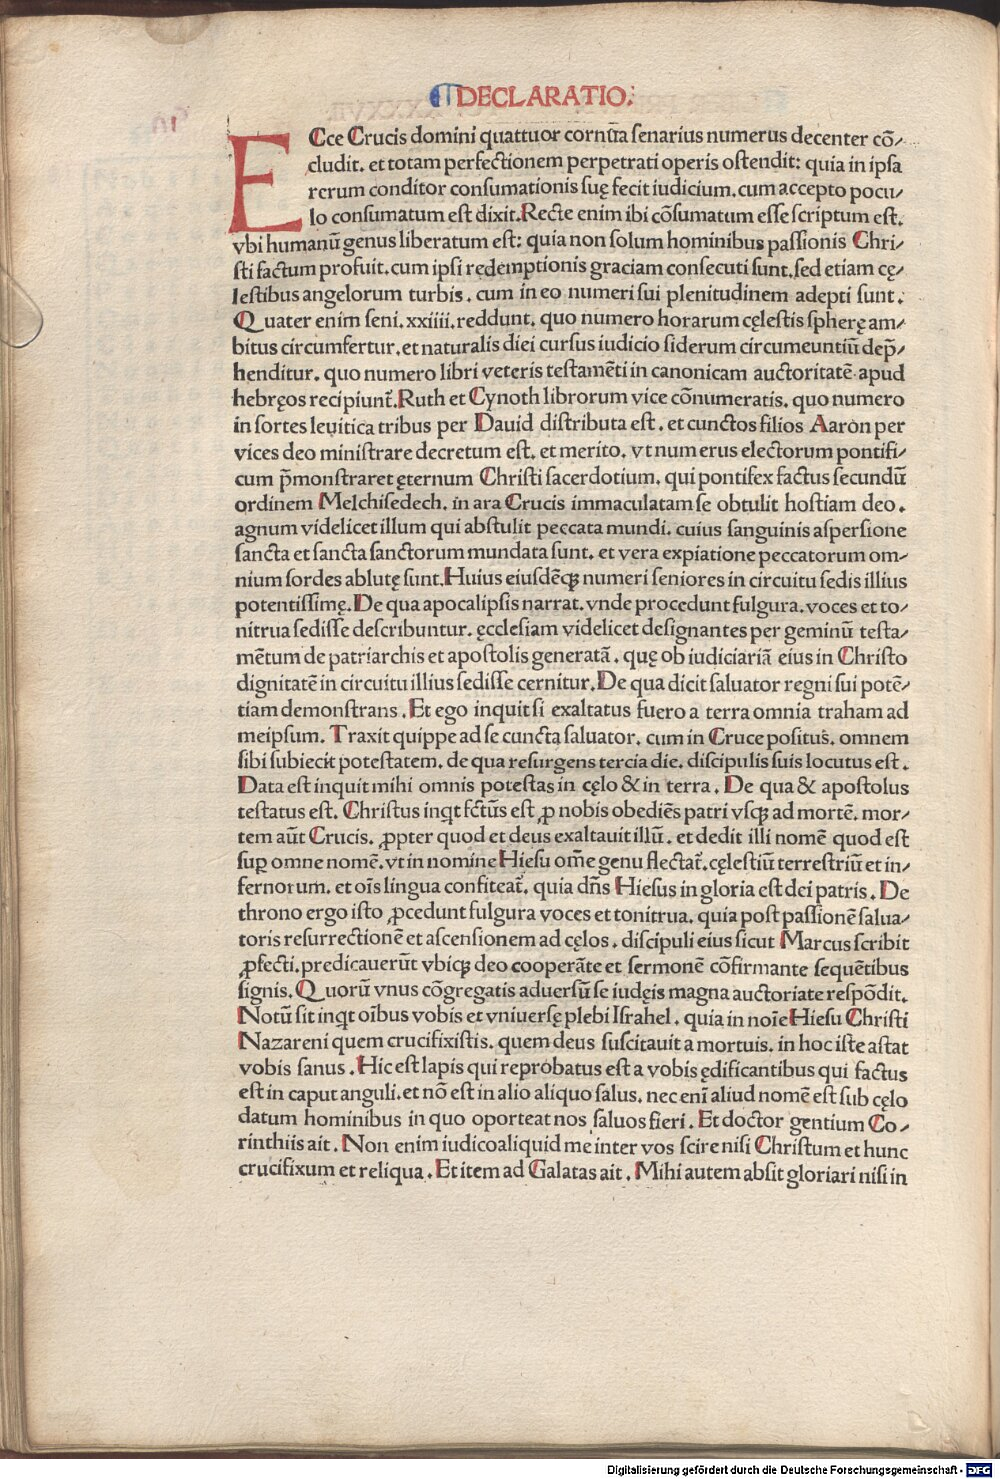 DECLARATIO:
ECce Crucis domini quattuor cornũa senarius numerus decenter cõ/
cludit. et totam perfectionem perpetrati operis ostendit: quia in ipsa
rerum conditor consumationis suę fecit iudicium. cum accepto pocu/
lo consumatum est dixit. Recte enim ibi cõsumatum esse scriptum est.
vbi humanũ genus liberatum est: quia non solum hominibus passionis Chri/
sti factum profuit. cum ipsi redemptionis graciam consecuti sunt. sed etiam cę/
lestibus angelorum turbis. cum in eo numeri sui plenitudinem adepti sunt.
Quater enim seni. xxiiii. reddunt. quo numero horarum cęlestis spherę am/
bitus circumfertur. et naturalis diei cursus iudicio siderum circumeuntiũ dep̃/
henditur. quo numero libri veteris testamẽti in canonicam auctoritatẽ apud
hebręos recipiunt̃. Ruth et Cynoth librorum vice cõnumeratis. quo numero
in sortes leuitica tribus per Dauid distributa est. et cunctos filios Aaron per
vices deo ministrare decretum est. et merito. vt numerus electorum pontifi/
cum p̃monstraret ęternum Christi sacerdotium. qui pontifex factus secundũ
ordinem Melchisedech. in ara Crucis immaculatam se obtulit hostiam deo.
agnum videlicet illum qui abstulit peccata mundi. cuius sanguinis aspersione
sancta et sancta sanctorum mundata sunt. et vera expiatione peccatorum om/
nium sordes ablutę sunt. Huius eiusdẽqꝫ numeri seniores in circuitu sedis illius
potentissimę. De qua apocalipsis narrat. vnde procedunt fulgura. voces et to/
nitrua sedisse describuntur. ęcclesiam videlicet designantes per geminũ testa/
mẽtum de patriarchis et apostolis generatã. quę ob iudiciariã eius in Christo
dignitatẽ in circuitu illius sedisse cernitur. De qua dicit saluator regni sui potẽ/
tiam demonstrans. Et ego inquit si exaltatus fuero a terra omnia traham ad
meipsum. Traxit quippe ad se cuncta saluator. cum in Cruce positus. omnem
sibi subiecit potestatem. de qua resurgens tercia die. discipulis suis locutus est.
Data est inquit mihi omnis potestas in cęlo & in terra. De qua & apostolus
testatus est. Christus inqt fctũs est ꝓ nobis obediẽs patri vsqꝫ ad mortẽ. mor/
tem aũt Crucis. ꝓpter quod et deus exaltauit illũ. et dedit illi nomẽ quod est
suꝑ omne nomẽ. vt in nomine Hiesu om̃e genu flectat̃. cęlestiũ terrestriũ et in/
fernorum. et oĩs lingua confiteat̃. quia dñs Hiesus in gloria est dei patris. De
throno ergo isto ꝓcedunt fulgura voces et tonitrua. quia post passionẽ salua/
toris resurrectionẽ et ascensionem ad cęlos. discipuli eius sicut Marcus scribit
ꝓfecti. predicauerũt vbiqꝫ deo cooperãte et sermonẽ cõfirmante sequẽtibus
signis. Quorũ vnus cõgregatis aduersũ se iudęis magna auctoriate respõdit.
Notũ sit inqt oĩbus vobis et vniuersę plebi Israhel. quia in noĩe Hiesu Christi
Nazareni quem crucifixistis. quem deus suscitauit a mortuis. in hoc iste astat
vobis sanus. Hic est lapis qui reprobatus est a vobis ędificantibus qui factus
est in caput anguli. et nõ est in alio aliquo salus. nec enĩ aliud nomẽ est sub cęlo
datum hominibus in quo oporteat nos saluos fieri. Et doctor gentium Co/
rinthiis ait. Non enim iudico aliquid me inter vos scire nisi Christum et hunc
crucifixum et reliqua. Et item ad Galatas ait. Mihi autem absit gloriari nisi in
Digitalisierung gefördert durch die Deutsche Forschungsgemeinschaft - DFG